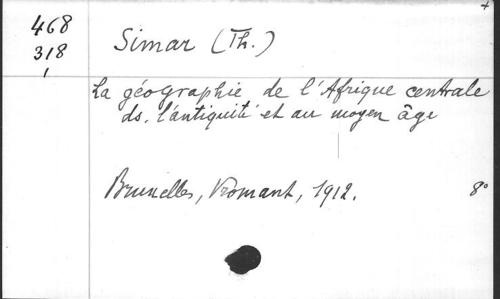 468
318
1
Simar (Th.)
La géographie de l'Afrique centrale
ds. l'antiquité et au moyen âge
Bruxelles, Vromant, 1912.
8°